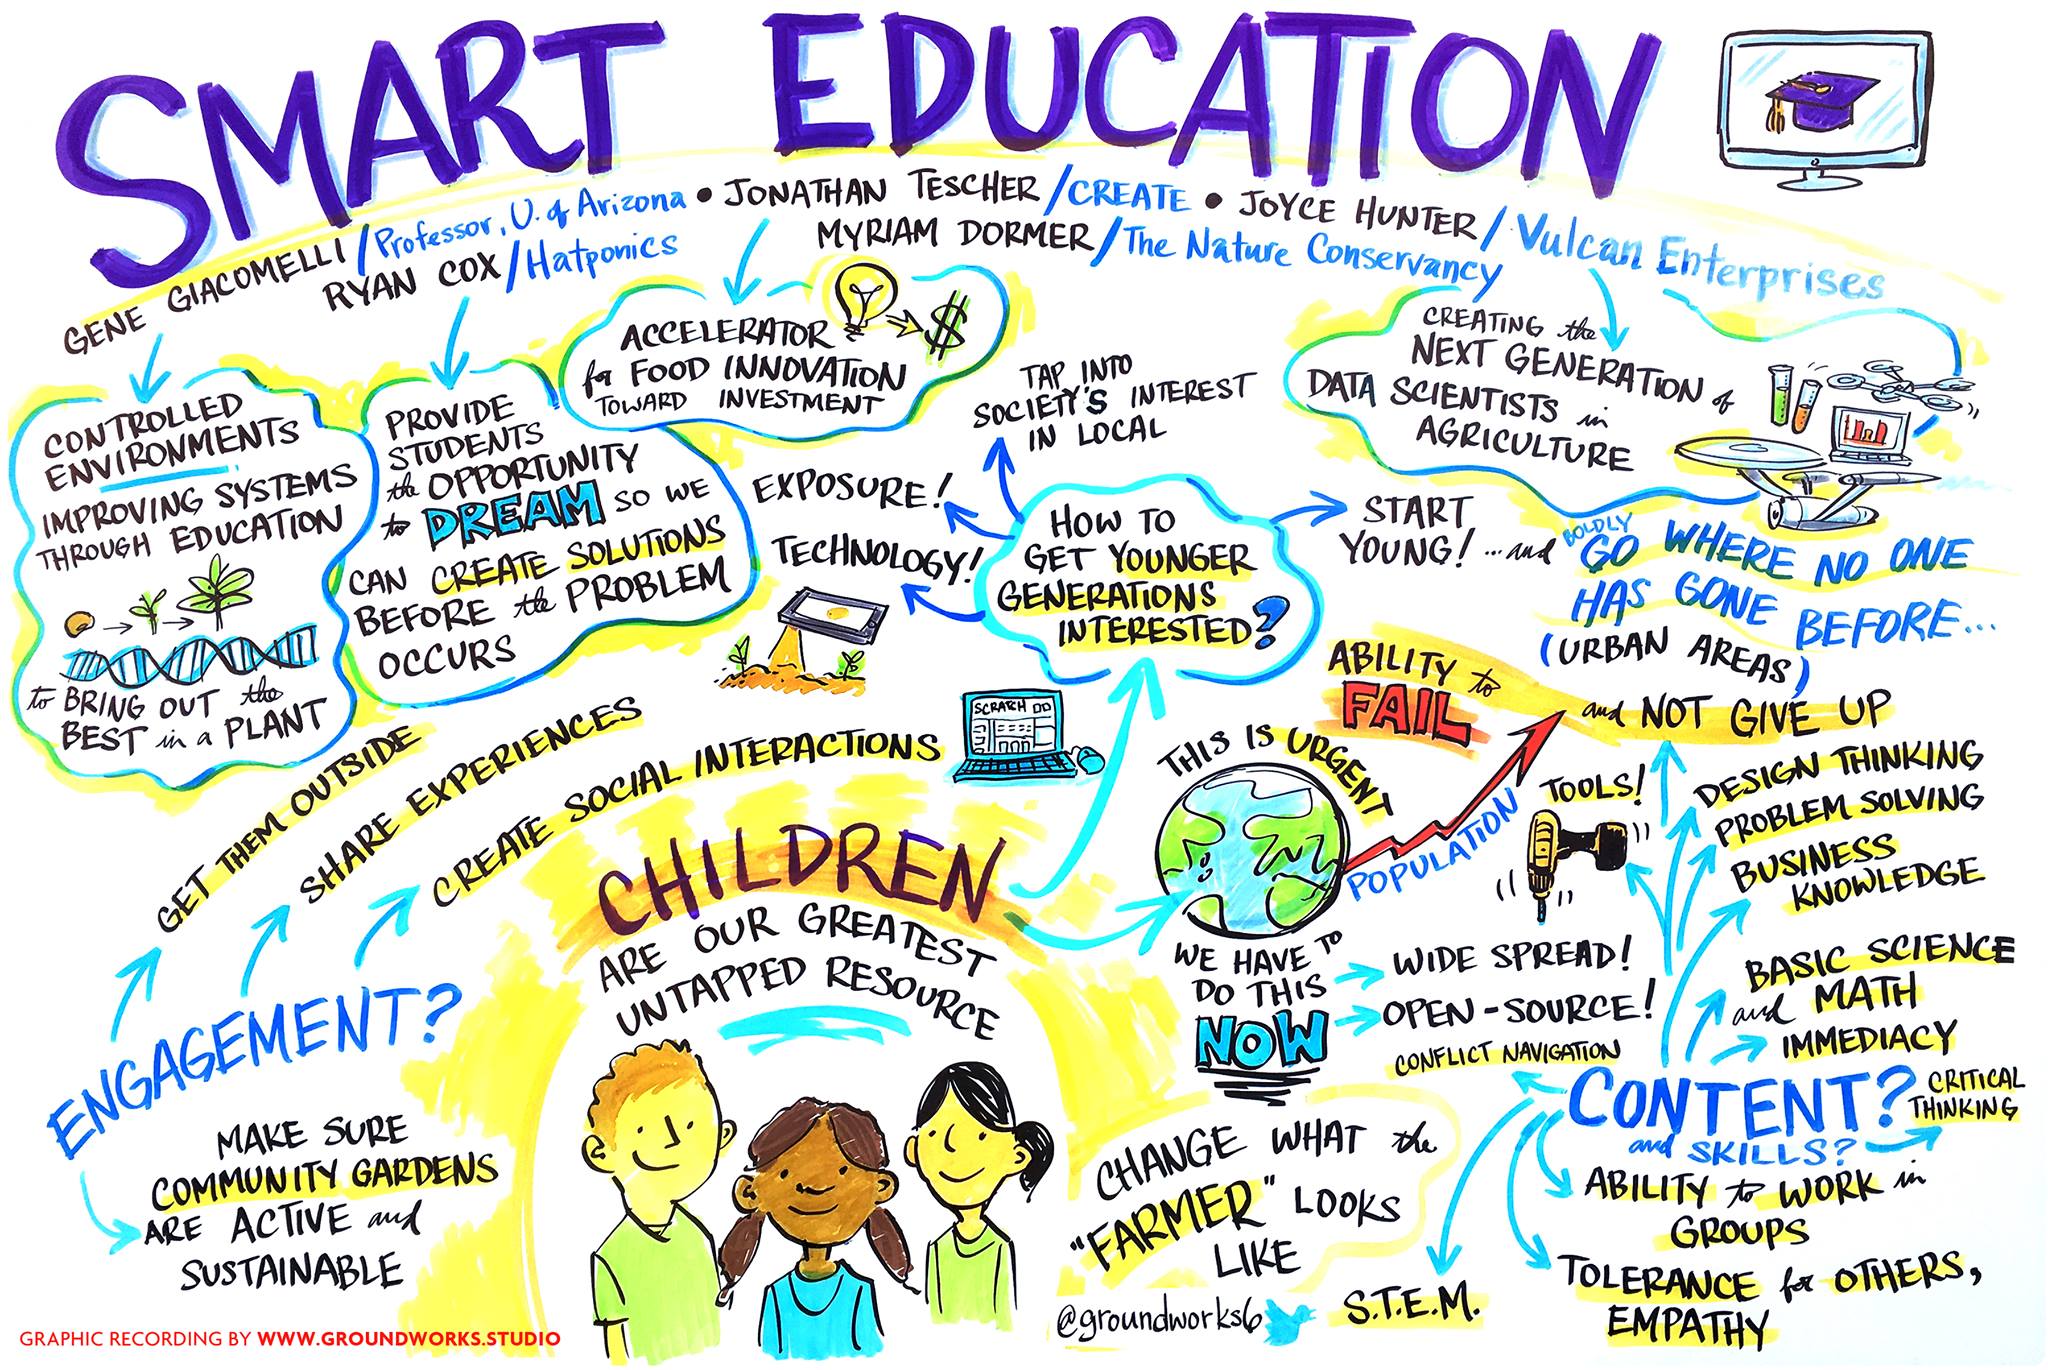 SMART EDUCATION
GENE GIACOMELLI/Professor, U. of Arizona • JONATHAN TESCHER/CREATE • JOYCE HUNTER/Vulcan Enterprises
RYAN COX/Hatponics
MYRIAM DORMER/The Nature Conservancy
CONTROLLED
ENVIRONMENTS
IMPROVING SYSTEMS
THROUGH EDUCATION
to BRING OUT the
BEST in a PLANT
PROVIDE
STUDENTS
the OPPORTUNITY
to DREAM SO WE
CAN CREATE SOLUTIONS
BEFORE the PROBLEM
OCCURS
ACCELERATOR
for FOOD INNOVATION
TOWARD INVESTMENT
$
CREATING the
NEXT GENERATION of
DATA SCIENTISTS in
AGRICULTURE
TAP INTO
SOCIETY'S INTEREST
IN LOCAL
EXPOSURE!
TECHNOLOGY!
HOW TO
GET YOUNGER
GENERATIONS
INTERESTED?
START
YOUNG! ...and
BOLDLY
GO WHERE NO ONE
HAS GONE BEFORE...
(URBAN AREAS)
ABILITY to
FAIL
and NOT GIVE UP
SCRATCH
GET THEM OUTSIDE
SHARE EXPERIENCES
CREATE SOCIAL INTERACTIONS
ENGAGEMENT?
MAKE SURE
COMMUNITY GARDENS
ARE ACTIVE and
SUSTAINABLE
CHILDREN
ARE OUR GREATEST
UNTAPPED RESOURCE
THIS IS URGENT
POPULATION
WE HAVE TO
DO THIS
NOW
WIDE SPREAD!
OPEN-SOURCE!
TOOLS!
DESIGN THINKING
PROBLEM SOLVING
BUSINESS
KNOWLEDGE
BASIC SCIENCE
and MATH
IMMEDIACY
CONFLICT NAVIGATION
CONTENT?
and SKILLS?
CRITICAL
THINKING
ABILITY to WORK in
GROUPS
TOLERANCE for OTHERS,
EMPATHY
S.T.E.M.
CHANGE WHAT the
"FARMER" LOOKS
LIKE
@groundworks6
GRAPHIC RECORDING BY WWW.GROUNDWORKS.STUDIO